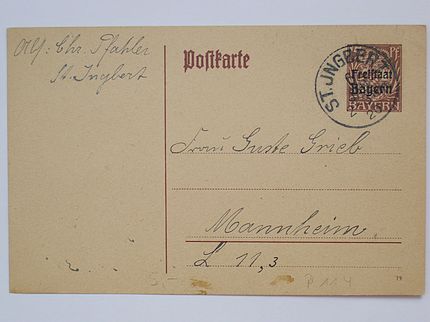 Chr. Pfahler
St. Ingbert
Postkarte
ST. JNGBERT
PF
Freistaat
Bayern
BAYERN
Frau Guste Grieb
Mannheim
L 11,3
5,-